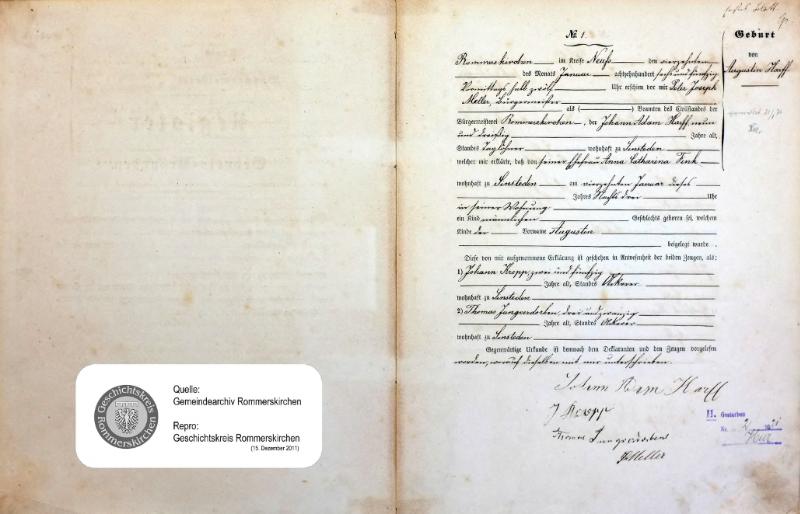 Geschichtskreis
Rommerskirchen
Quelle:
Gemeindearchiv Rommerskirchen
Repro:
Geschichtskreis Rommerskirchen
(15. Dezember 2011)
№ 1.
Rommerskirchen im Kreise Neuß den vierzehnten
des Monats Januar achtzehnhundert sechs und fünfzig
Vormittags halb zwölf Uhr erschien vor mir Peter Joseph
Meller, Bürgermeister
als Beamten des Civilstandes der
Bürgermeisterei Rommerskirchen, der Johann Adam Harff, neun
und dreißig Jahre alt,
Standes Taglöhner wohnhaft zu Sinsteden
welcher mir erklärte, daß von seiner Ehefrau Anna Catharina Fenk
wohnhaft zu Sinsteden am vierzehnten Januar dieses
Jahres Nachts drei Uhr
in seiner Wohnung
ein Kind männlichen Geschlechts geboren sei, welchem
Kinde der Vorname Augustin
beigelegt wurde.
Diese von mir aufgenommene Erklärung ist geschehen in Anwesenheit der beiden Zeugen, als:
1) Johann Kropp, zwei und fünfzig
Jahre alt, Standes Ackerer
wohnhaft zu Sinsteden
2) Thomas Jungverdorben, drei und zwanzig
Jahre alt, Standes Ackerer
wohnhaft zu Sinsteden
Gegenwärtige Urkunde ist demnach dem Declaranten und den Zeugen vorgelesen
worden, worauf dieselben mit mir unterschrieben.
Johann Adam Harff
J Kropp
Thomas Jungverdorben
PJMeller
Geburt
von
Augustin Harff
H. Gestorben
Nr.